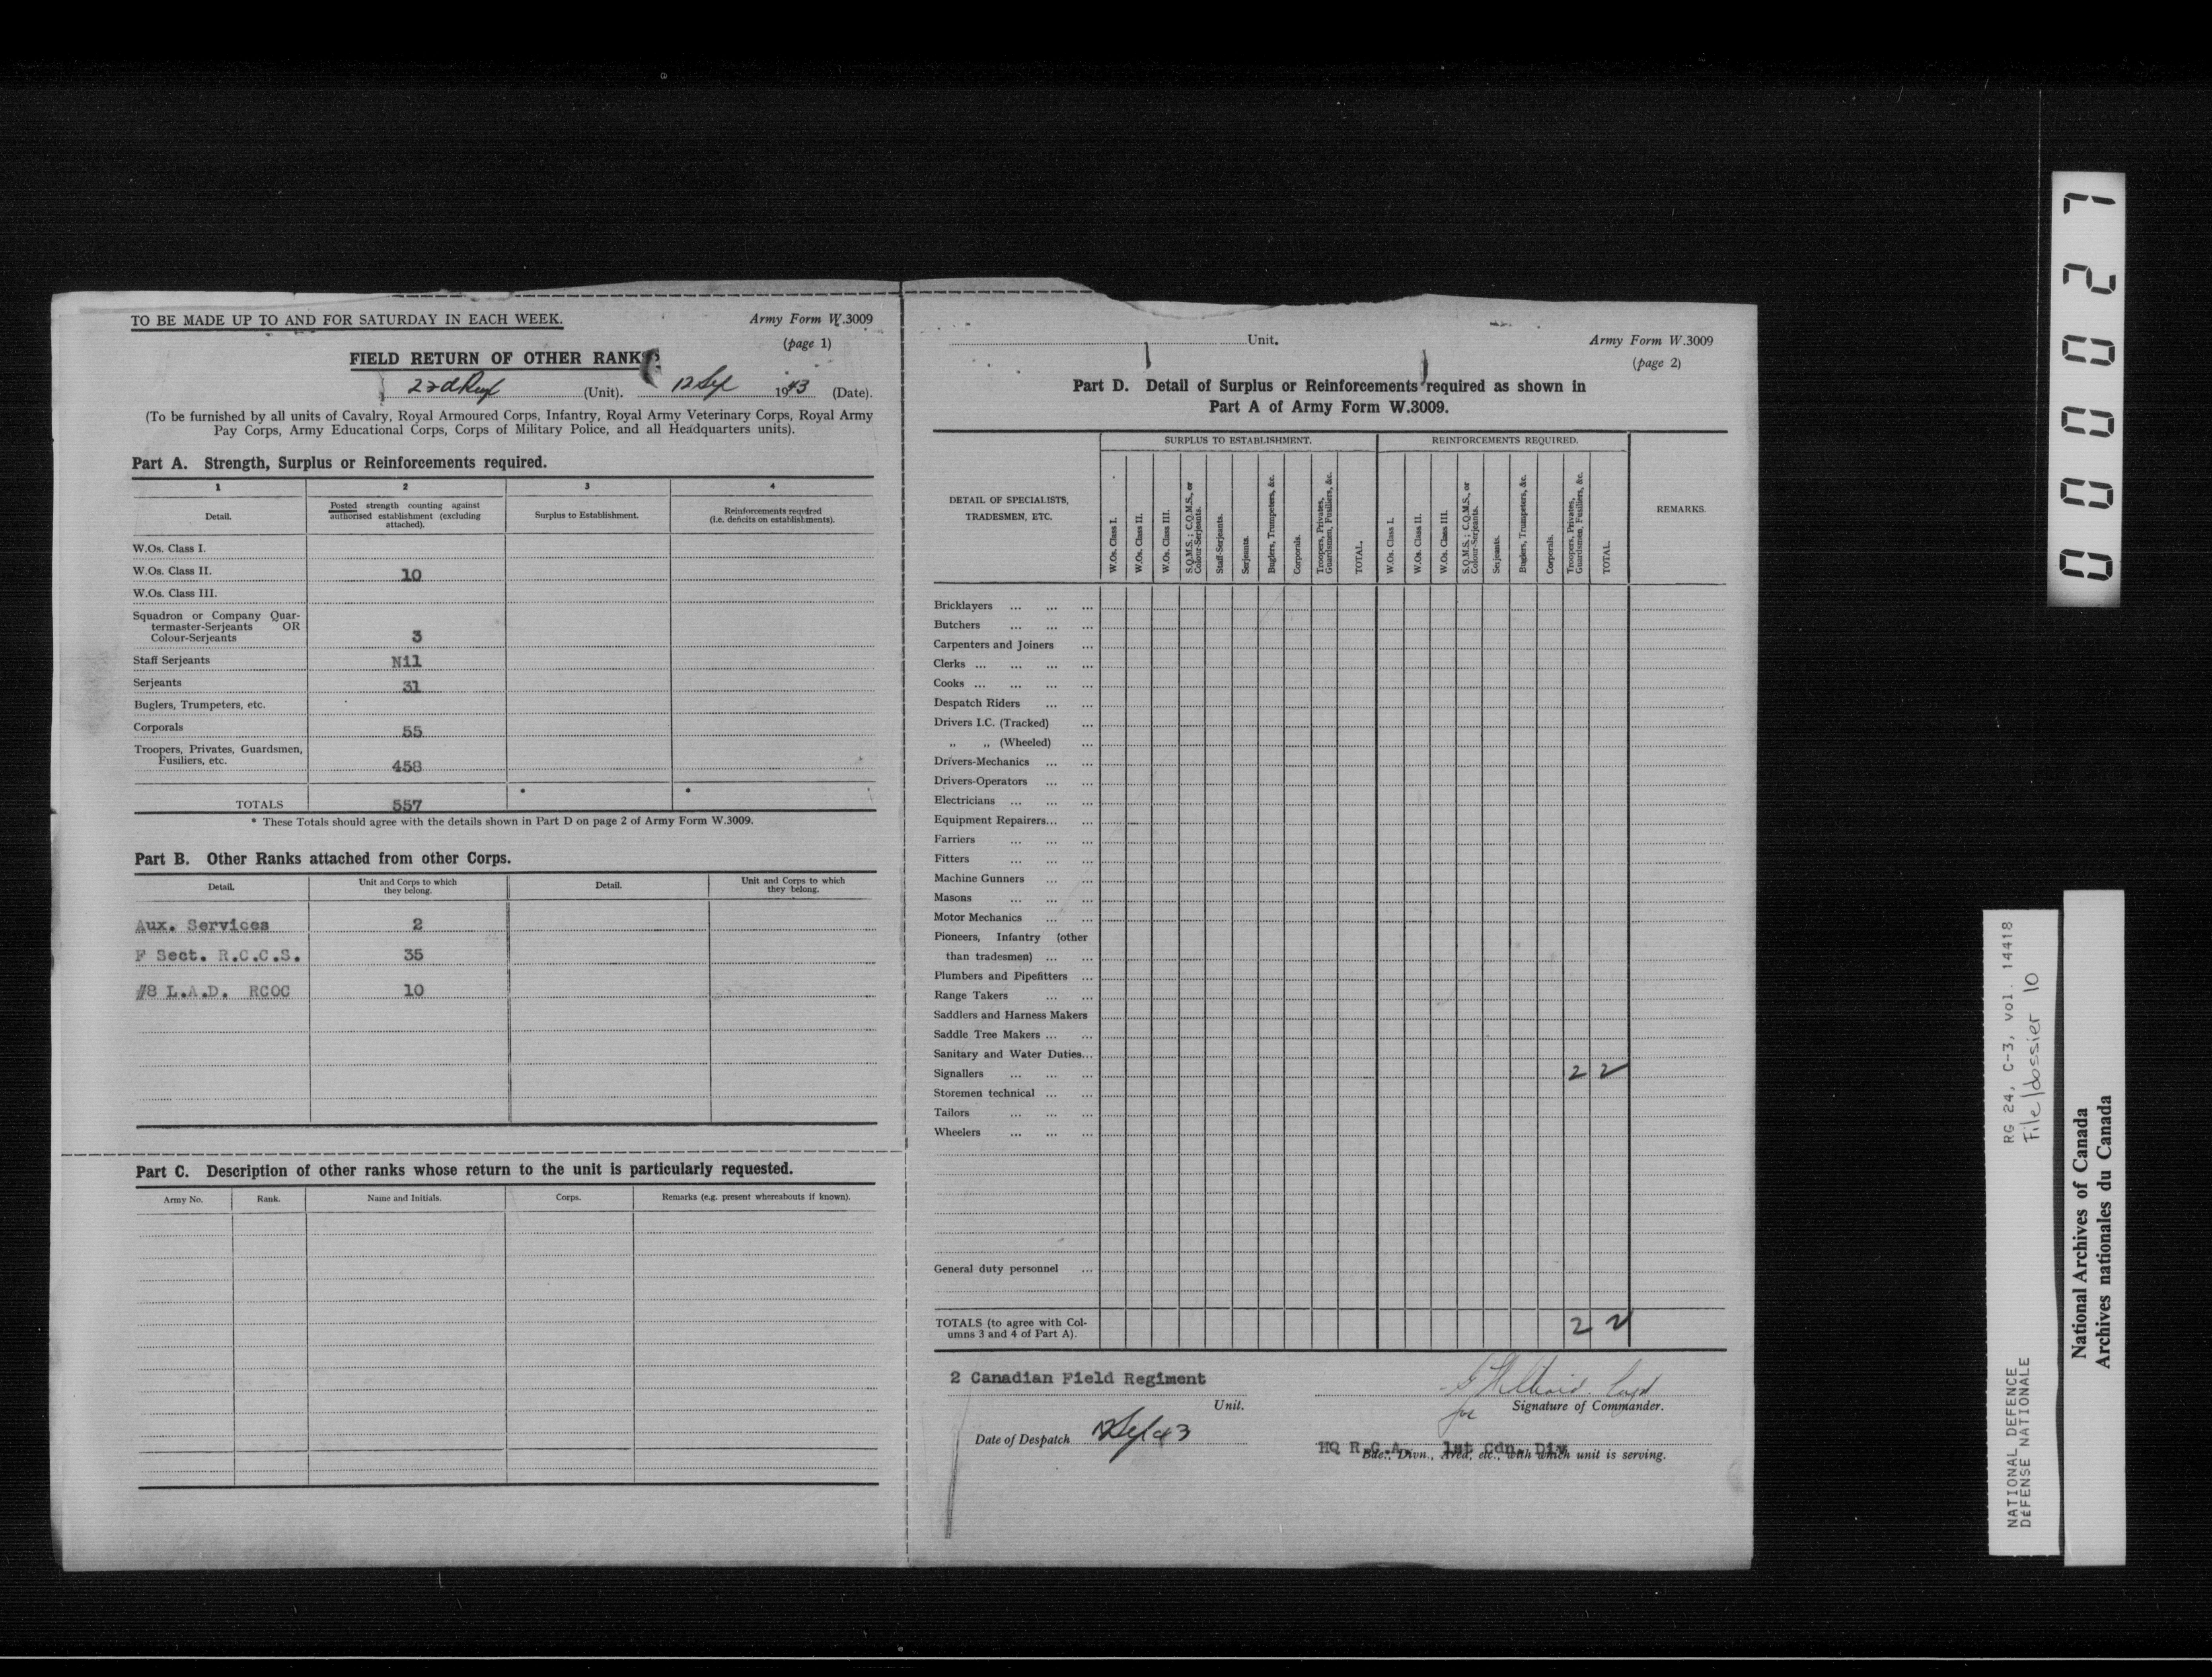 TO BE MADE UP TO AND FOR SATURDAY IN EACH WEEK.
Army Form W.3009
(page 1)
FIELD RETURN OF OTHER RANKS
(Unit). 12 Sep 1943 (Date).
(To be furnished by all units of Cavalry, Royal Armoured Corps, Infantry, Royal Army Veterinary Corps, Royal Army
Pay Corps, Army Educational Corps, Corps of Military Police, and all Headquarters units).
Part A. Strength, Surplus or Reinforcements required.
1 2 3 4
Detail.
Posted strength counting against
authorised establishment (excluding
attached).
Surplus to Establishment.
Reinforcements required
(i.e. deficits on establishments).
W.Os. Class I.
W.Os. Class II. 10
W.Os. Class III.
Squadron or Company Quar-
termaster-Serjeants OR
Colour-Serjeants 3
Staff Serjeants Nil
Serjeants 31
Buglers, Trumpeters, etc.
Corporals 55
Troopers, Privates, Guardsmen,
Fusiliers, etc. 458
TOTALS 557 * *
* These Totals should agree with the details shown in Part D on page 2 of Army Form W.3009.
Part B. Other Ranks attached from other Corps.
Detail.
Unit and Corps to which
they belong.
Detail.
Unit and Corps to which
they belong.
Aux. Services 2
F Sect. R.C.C.S. 35
#8 L.A.D. RCOC 10
Part C. Description of other ranks whose return to the unit is particularly requested.
Army No. Rank. Name and Initials. Corps. Remarks (e.g. present whereabouts if known).
Unit.
Army Form W.3009
(page 2)
Part D. Detail of Surplus or Reinforcements required as shown in
Part A of Army Form W.3009.
DETAIL OF SPECIALISTS,
TRADESMEN, ETC.
SURPLUS TO ESTABLISHMENT.
W.Os. Class I.
W.Os. Class II.
W.Os. Class III.
S.Q.M.S.; C.Q.M.S., or
Colour-Serjeants.
Staff-Serjeants.
Serjeants.
Buglers, Trumpeters, &c.
Corporals.
Troopers, Privates,
Guardsmen, Fusiliers, &c.
TOTAL.
REINFORCEMENTS REQUIRED.
W.Os. Class I.
W.Os. Class II.
W.Os. Class III.
S.Q.M.S.; C.Q.M.S., or
Colour-Serjeants.
Serjeants.
Buglers, Trumpeters, &c.
Corporals.
Troopers, Privates,
Guardsmen, Fusiliers, &c.
TOTAL.
REMARKS.
Bricklayers ... ... ...
Butchers ... ... ...
Carpenters and Joiners ...
Clerks ... ... ... ...
Cooks ... ... ... ...
Despatch Riders ... ...
Drivers I.C. (Tracked) ...
„ „ (Wheeled) ...
Drivers-Mechanics ... ...
Drivers-Operators ... ...
Electricians ... ... ...
Equipment Repairers... ...
Farriers ... ... ...
Fitters ... ... ...
Machine Gunners ... ...
Masons ... ... ...
Motor Mechanics ... ...
Pioneers, Infantry (other
than tradesmen) ... ...
Plumbers and Pipefitters ...
Range Takers ... ...
Saddlers and Harness Makers
Saddle Tree Makers ... ...
Sanitary and Water Duties...
Signallers ... ... ... 2 2
Storemen technical ... ...
Tailors ... ... ...
Wheelers ... ... ...
General duty personnel ...
TOTALS (to agree with Col-
umns 3 and 4 of Part A). 2 2
2 Canadian Field Regiment
Unit.
Capt
for Signature of Commander.
Date of Despatch 12 Sep 43
HQ R.C.A. 1st Cdn. Div
Bde., Divn., Area, etc., with which unit is serving.
000027
RG 24, C-3, vol. 14418
File/dossier 10
NATIONAL DEFENCE
DÉFENSE NATIONALE
National Archives of Canada
Archives nationales du Canada